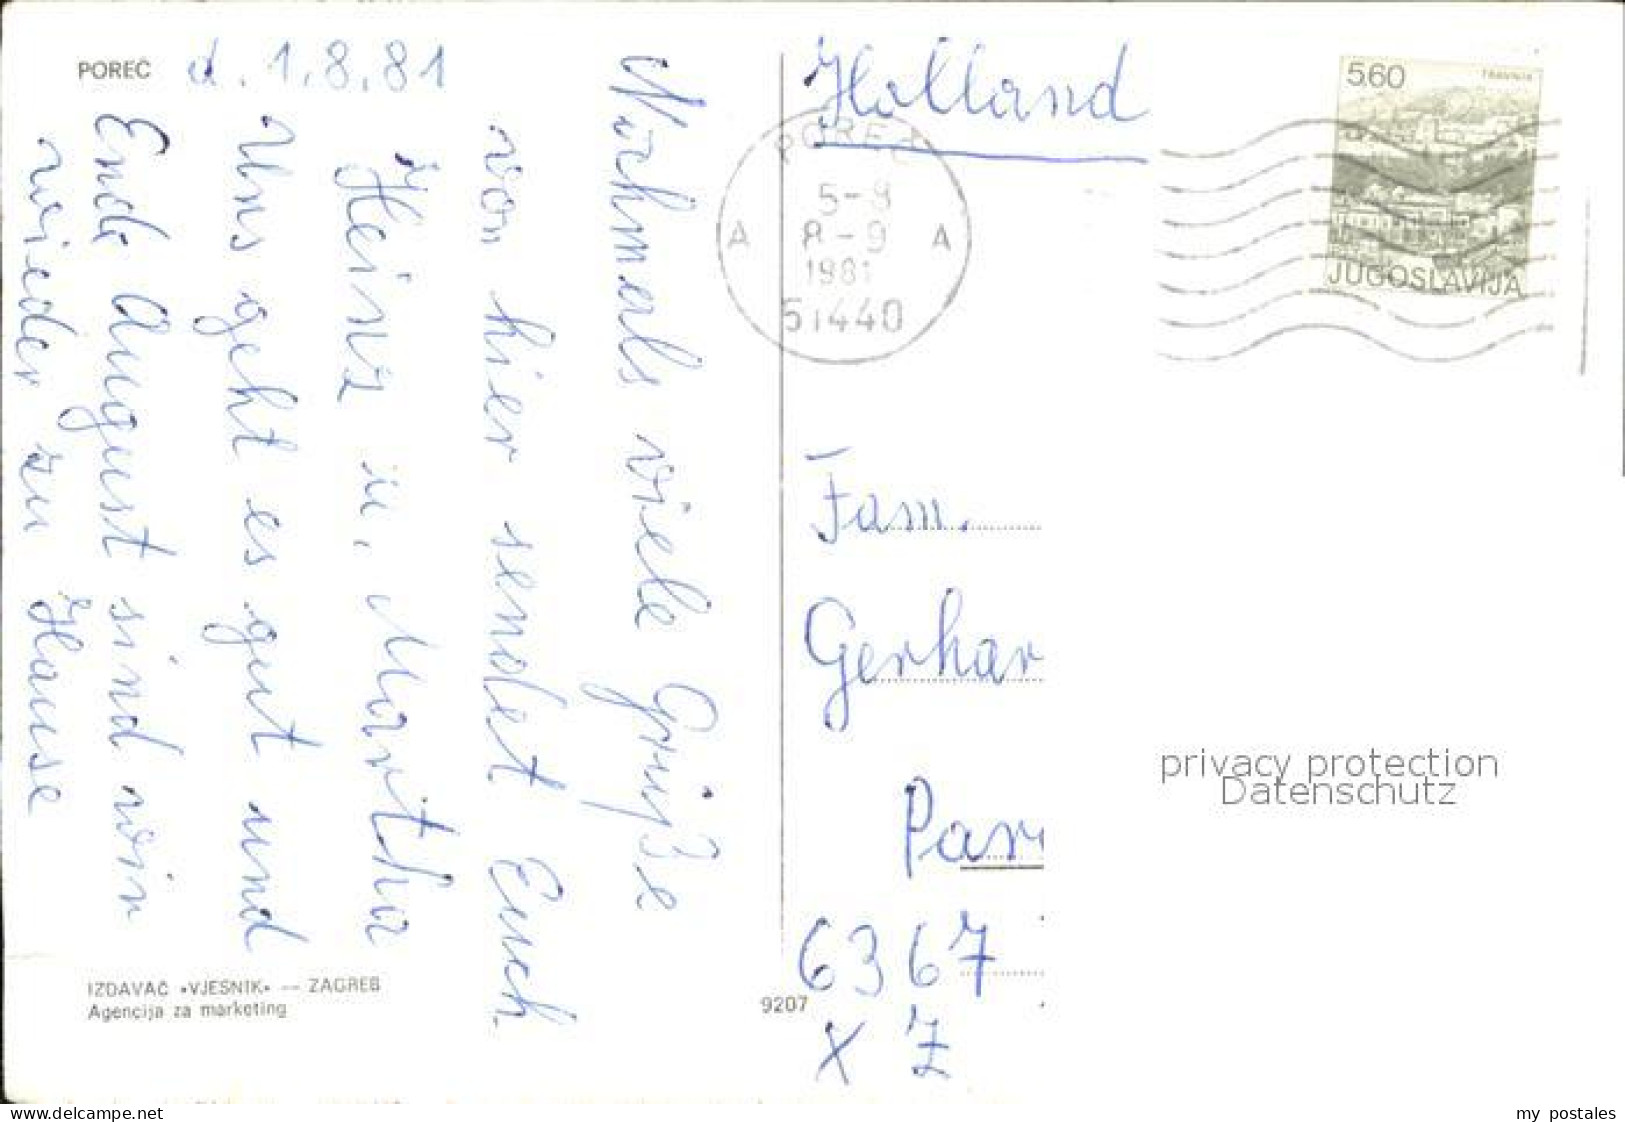 POREČ
d. 1.8.81
Nochmals viele Grüße
von hier sendet Euch
Heinz u. Martha
Uns geht es gut und
Ende August sind wir
wieder zu Hause
IZDAVAČ «VJESNIK» — ZAGREB
Agencija za marketing
9207
Holland
POREČ
5-8
8-9
1981
A A
51440
5.60
TRAVNIK
JUGOSLAVIJA
Fam.
Gerhar
Par
6367
X Z
privacy protection
Datenschutz
www.delcampe.net
my postales